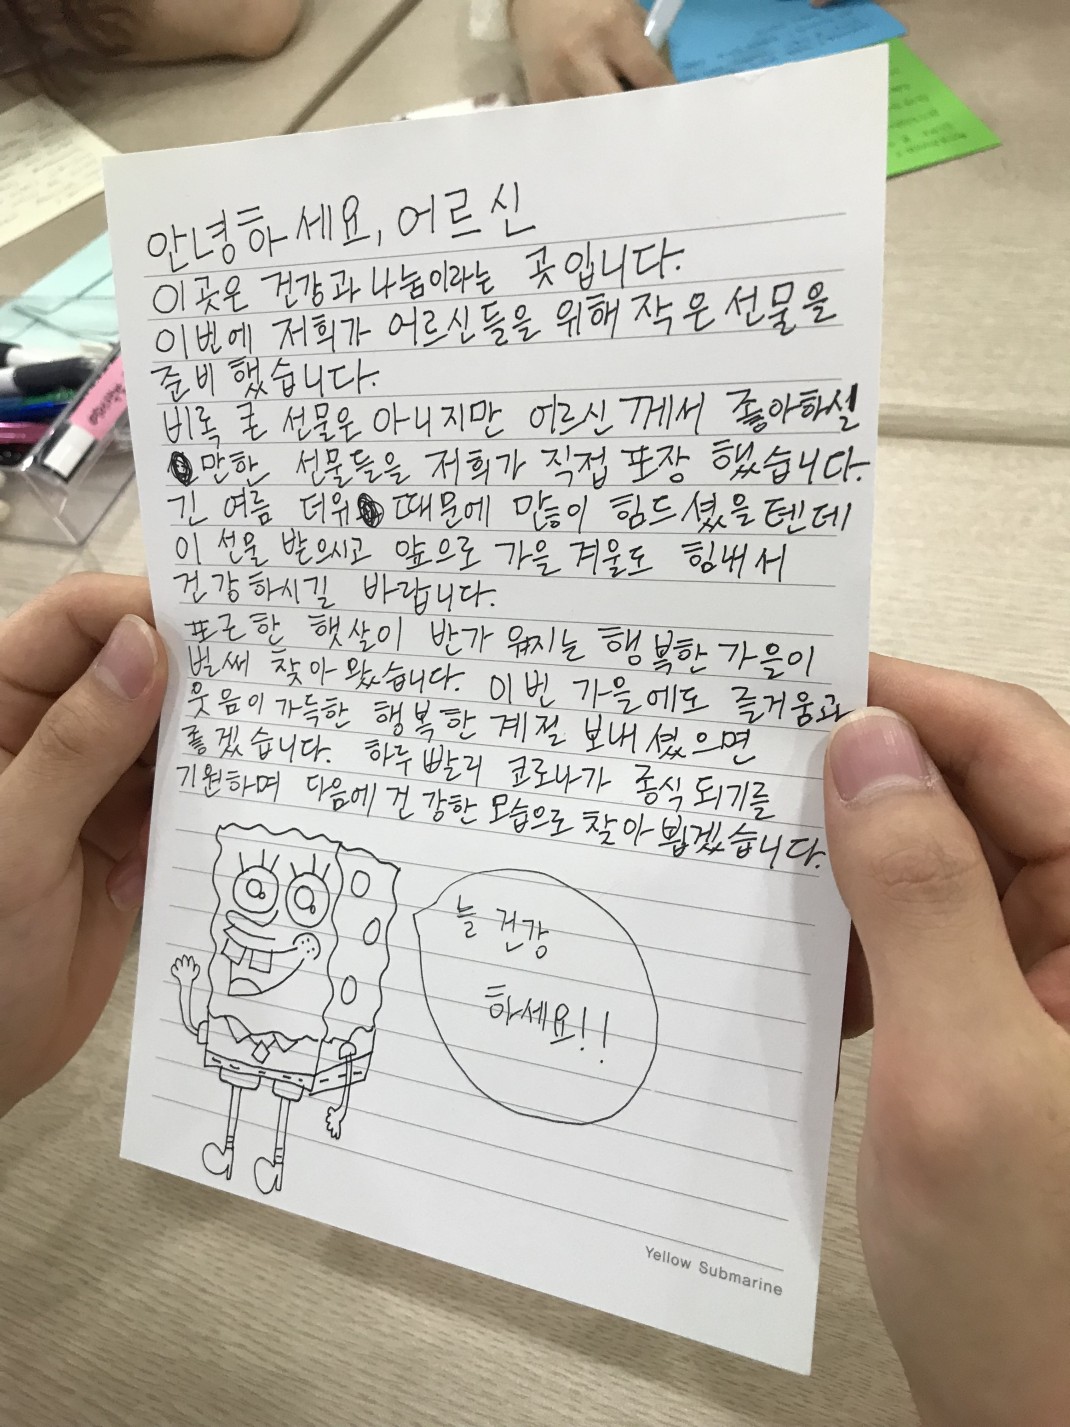 안녕하세요, 어르신
이곳은 건강과 나눔이라는 곳입니다.
이번에 저희가 어르신들을 위해 작은 선물을
준비 했습니다.
비록 큰 선물은 아니지만 어르신께서 좋아하실
만한 선물들을 저희가 직접 포장 했습니다.
긴 여름 더위 때문에 많이 힘드셨을텐데
이 선물 받으시고 앞으로 가을 겨울도 힘내서
건강하시길 바랍니다.
포근한 햇살이 반가워지는 행복한 가을이
벌써 찾아 왔습니다. 이번 가을에도 즐거움과
웃음이 가득한 행복한 계절 보내셨으면
좋겠습니다. 하루 빨리 코로나가 종식되기를
기원하며 다음에 건강한 모습으로 찾아 뵙겠습니다.
늘 건강
하세요!!
Yellow Submarine